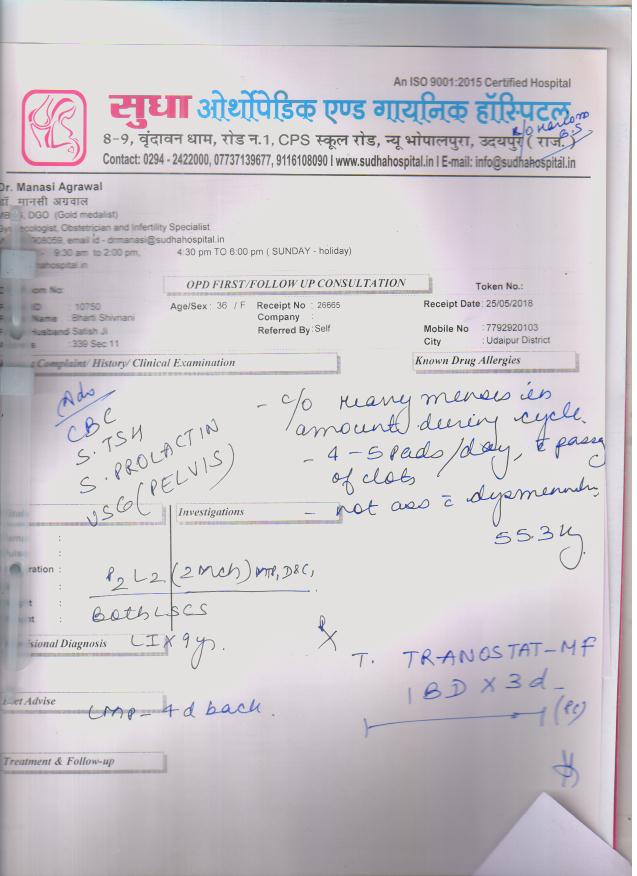 An ISO 9001:2015 Certified Hospital
सुधा ओर्थोपेडिक एण्ड गायनिक हॉस्पिटल
8-9, वृंदावन धाम, रोड न.1, CPS स्कूल रोड, न्यू भोपालपुरा, उदयपुर ( राज. )
Contact: 0294 - 2422000, 07737139677, 9116108090 I www.sudhahospital.in I E-mail: info@sudhahospital.in
Dr. Manasi Agrawal
डॉ. मानसी अग्रवाल
DGO (Gold medalist)
Obstetrician and Infertility Specialist
email id - drmanasi@sudhahospital.in
9:30 am to 2:00 pm, 4:30 pm TO 6:00 pm ( SUNDAY - holiday)
hospital.in
OPD FIRST/FOLLOW UP CONSULTATION
Token No.:
om No:
ID : 10750 Age/Sex : 36 / F Receipt No : 26665 Receipt Date : 25/05/2018
Name : Bharti Shivnani Company :
Husband Satish Ji Referred By : Self Mobile No : 7792920103
: 339 Sec 11 City : Udaipur District
Complaint/ History/ Clinical Examination
Known Drug Allergies
Adv
CBC
S. TSH
S. PROLACTIN
USG (PELVIS)
- c/o Heavy menses in
amount during cycle.
- 4-5 pads/day, c passg
of clots
- not ass c
55.3 kg
Investigations
ration :
P2 L2 (2 Mch) MTP, D&C,
Both LSCS
LI X 9 yr.
sional Diagnosis
Rx
T. TRANOSTAT-MF
1 BD X 3 d
(PC)
et Advise
LMP - 4 d back.
Treatment & Follow-up